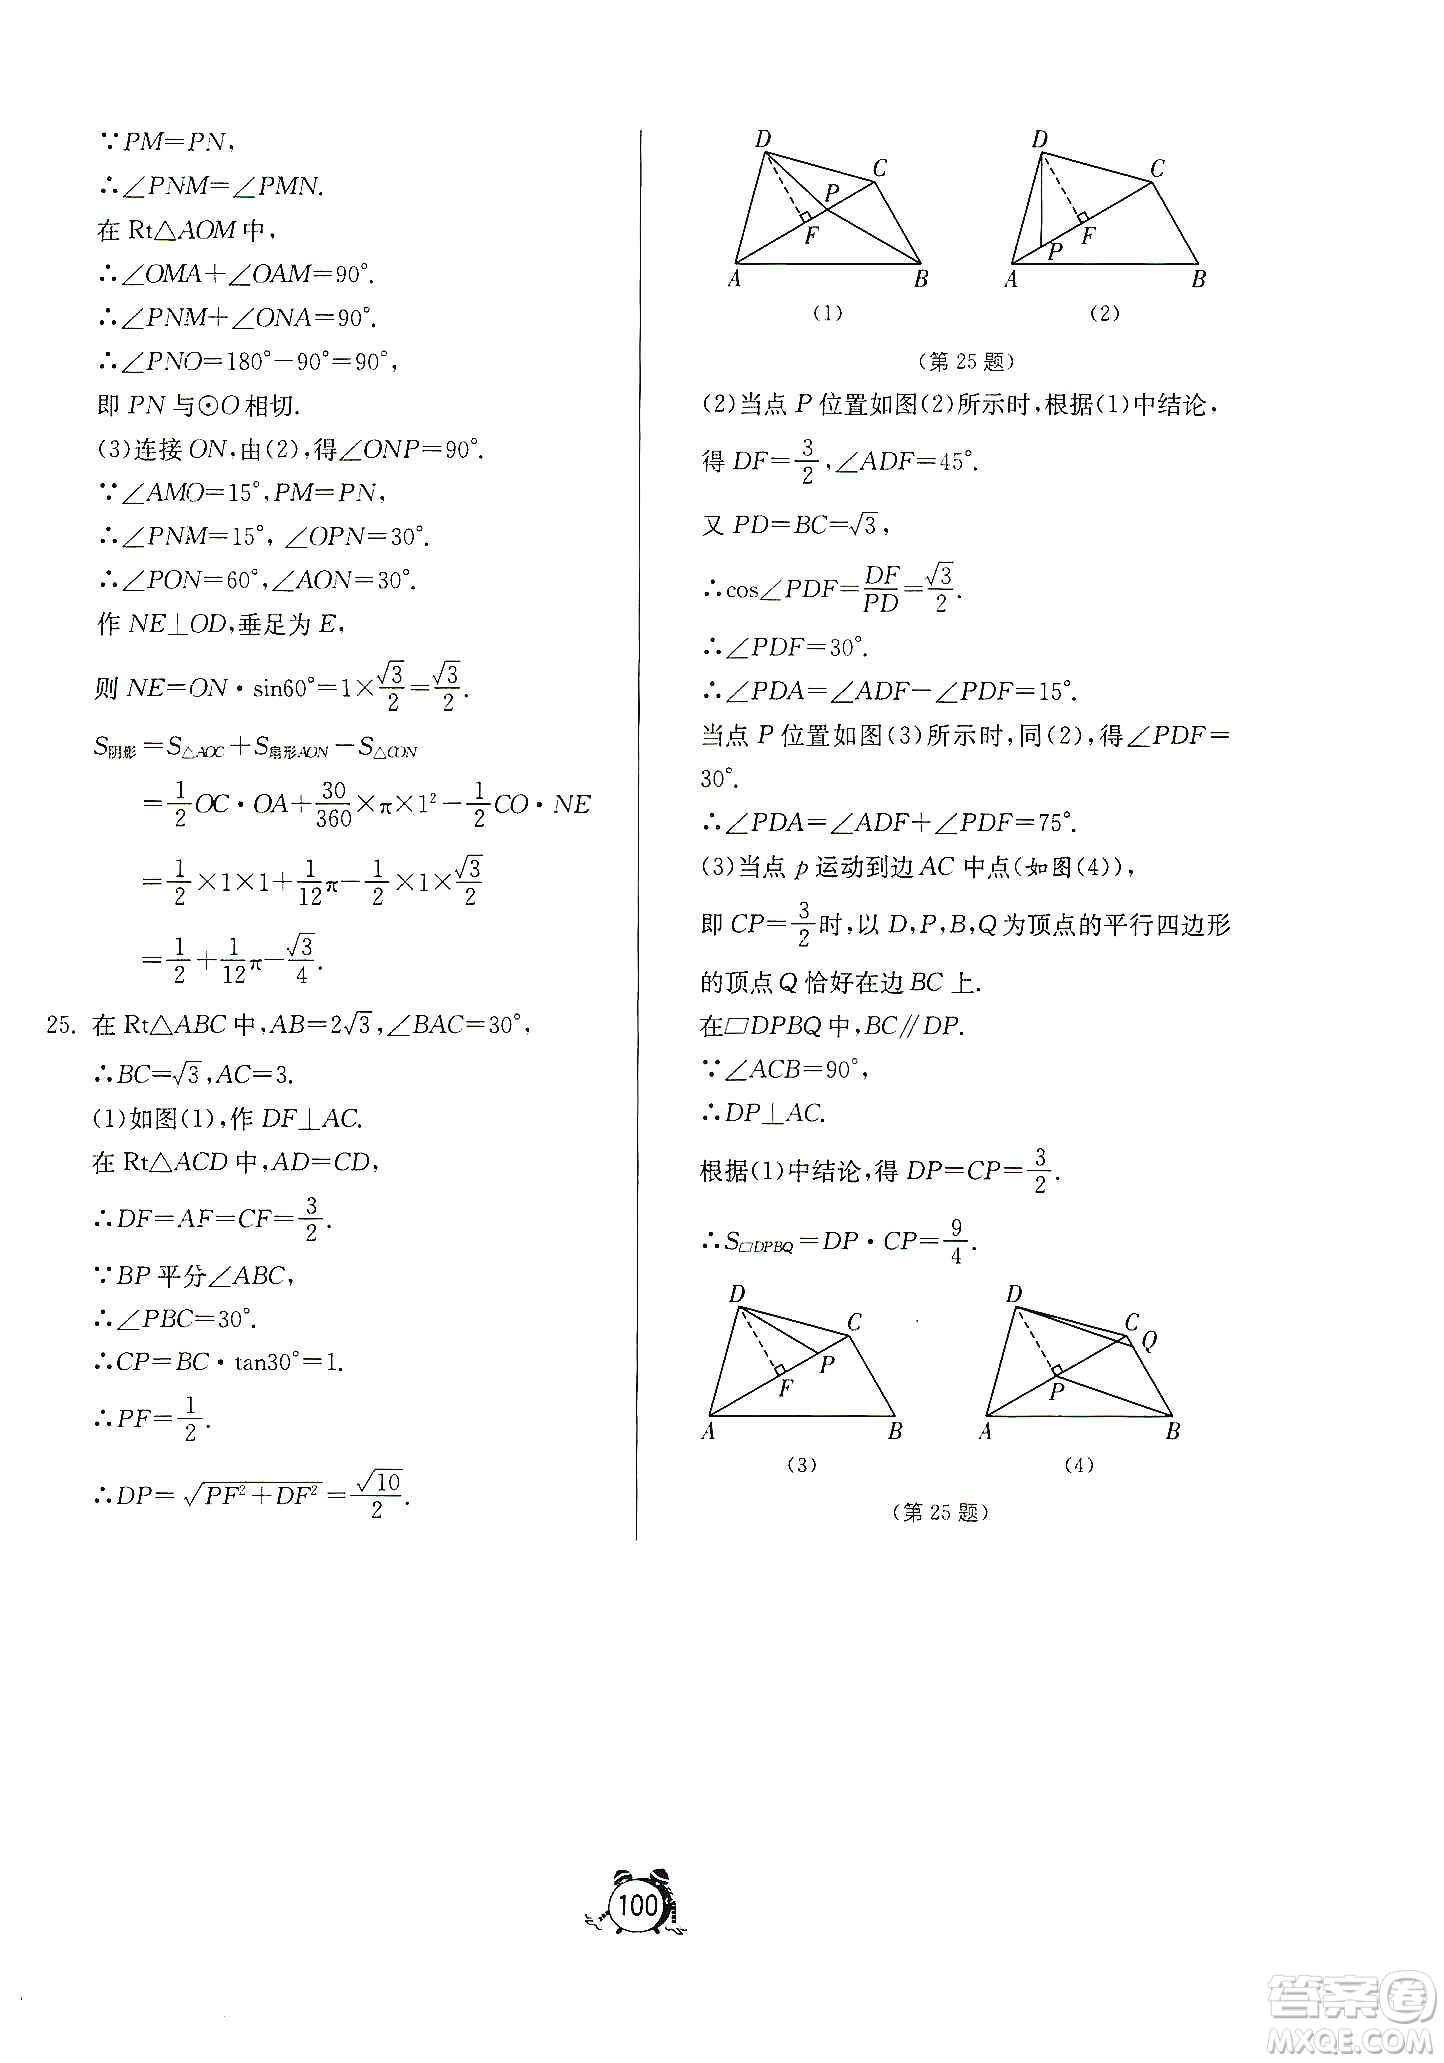 ∵PM=PN,
∴∠PNM=∠PMN.
在 Rt△AOM 中,
∴∠OMA+∠OAM=90°.
∴∠PNM+∠ONA=90°.
∴∠PNO=180°-90°=90°,
即 PN 与⊙O 相切.
(3)连接 ON,由(2),得∠ONP=90°.
∵∠AMO=15°,PM=PN,
∴∠PNM=15°,∠OPN=30°.
∴∠PON=60°,∠AON=30°.
作 NE⊥OD,垂足为 E,
则 NE=ON·sin60°=1×√3/2=√3/2.
S阴影=S△AOC+S扇形AON-S△CON
=1/2 OC·OA+30/360×π×1²-1/2 CO·NE
=1/2×1×1+1/12 π-1/2×1×√3/2
=1/2+1/12 π-√3/4.
25. 在 Rt△ABC 中,AB=2√3,∠BAC=30°,
∴BC=√3,AC=3.
(1)如图(1),作 DF⊥AC.
在 Rt△ACD 中,AD=CD,
∴DF=AF=CF=3/2.
∵BP 平分∠ABC,
∴∠PBC=30°.
∴CP=BC·tan30°=1.
∴PF=1/2.
∴DP=√(PF²+DF²)=√10/2.
D C P F A B
D C P F A B
(1) (2)
(第 25 题)
(2)当点 P 位置如图(2)所示时,根据(1)中结论,
得 DF=3/2,∠ADF=45°.
又 PD=BC=√3,
∴cos∠PDF=DF/PD=√3/2.
∴∠PDF=30°.
∴∠PDA=∠ADF-∠PDF=15°.
当点 P 位置如图(3)所示时,同(2),得∠PDF=
30°.
∴∠PDA=∠ADF+∠PDF=75°.
(3)当点 p 运动到边 AC 中点(如图(4)),
即 CP=3/2时,以 D,P,B,Q 为顶点的平行四边形
的顶点 Q 恰好在边 BC 上.
在▱DPBQ 中,BC∥DP.
∵∠ACB=90°,
∴DP⊥AC.
根据(1)中结论,得 DP=CP=3/2.
∴S▱DPBQ=DP·CP=9/4.
D C P F A B
D C Q P A B
(3) (4)
(第 25 题)
100
答案卷
MXQE.COM